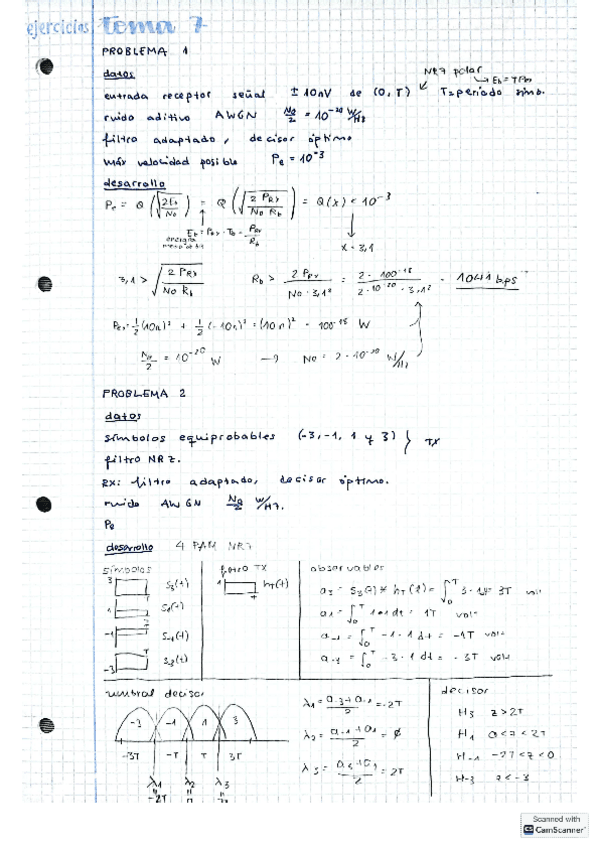 ejercicios tema 7
PROBLEMA 1
datos
NRZ polar
entrada receptor señal ± 10nV de (0, T)
ruido aditivo AWGN No/2 = 10^-20 W/Hz
filtro adaptado, decisor óptimo
máx velocidad posible Pe = 10^-3
desarrollo
Pe = Q(√(2Eb/No)) = Q(√(2 PRx/No Rb)) = Q(x) < 10^-3
x = 3,1
3,1 > √(2 PRx/No Rb) Rb > 2 PRx/No · 3,1² = 2 · 100^-18/2 · 10^-20 · 3,1² = 1041 bps
PRx = 1/2 (10n)² + 1/2 (-10n)² = (10n)² = 100^-18 W
No/2 = 10^-20 W → No = 2 · 10^-20 W/Hz
PROBLEMA 2
datos
símbolos equiprobables (-3, -1, 1 y 3) } TX
filtro NRZ.
RX: filtro adaptado, decisor óptimo.
ruido AWGN No/2 W/Hz.
Pe
desarrollo 4 PAM NRZ
símbolos
3 S3(t)
1 S1(t)
-1 S-1(t)
-3 S-3(t)
filtro TX
1 hT(t)
T
observables
a3 = S3(t) * hT(t) = ∫0^T 3 · 1dt = 3T volt
a1 = ∫0^T 1 · 1 dt = 1T volt
a-1 = ∫0^T -1 · 1 dt = -1T volt
a-3 = ∫0^T -3 · 1 dt = -3T volt
umbral decisor
-3 -1 1 3
-3T -T T 3T
λ1 λ2 λ3
-2T
λ1 = a-3+a-1/2 = -2T
λ2 = a-1+a1/2 = ø
λ3 = 2T
decisor
H3 z > 2T
H1 0 < z < 2T
H-1 -2T < z < 0
H-3
Scanned with
CamScanner